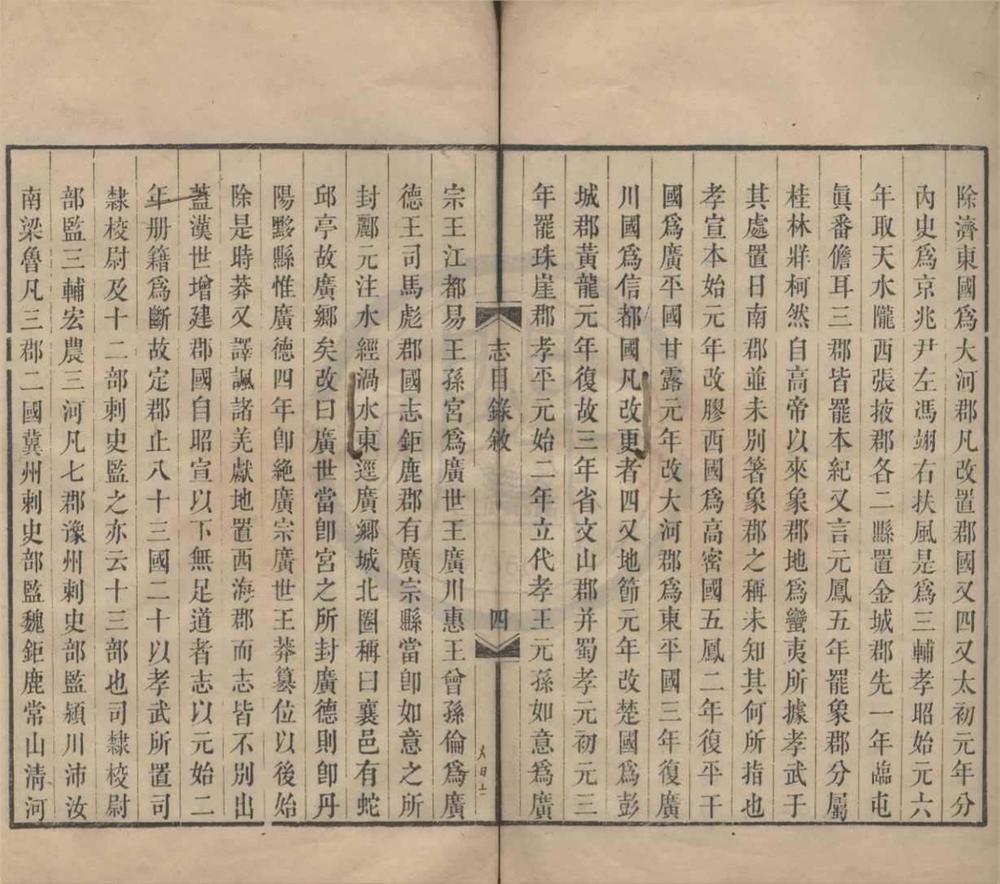 除濟東國爲大河郡凡改置郡國又四又太初元年分
內史爲京兆尹左馮翊右扶風是爲三輔孝昭始元六
年取天水隴西張掖郡各二縣置金城郡先一年臨屯
眞番儋耳三郡皆罷本紀又言元鳳五年罷象郡分屬
桂林牂柯然自高帝以來象郡地爲蠻夷所據孝武于
其處置日南郡並未別箸象郡之稱未知其何所指也
孝宣本始元年改膠西國爲高密國五鳳二年復平干
國爲廣平國甘露元年改大河郡爲東平國三年復廣
川國爲信都國凡改更者四又地節元年改楚國爲彭
城郡黃龍元年復故三年省文山郡并蜀孝元初元三
年罷珠崖郡孝平元始二年立代孝王元孫如意爲廣
志目錄敘
四
宗王江都易王孫宮爲廣世王廣川惠王曾孫倫爲廣
德王司馬彪郡國志鉅鹿郡有廣宗縣當卽如意之所
封酈元注水經渦水東逕廣鄉城北圈稱曰襄邑有蛇
邱亭故廣鄉矣改曰廣世當卽宮之所封廣德則卽丹
陽黟縣惟廣德四年卽絶廣宗廣世王莽篡位以後始
除是時莽又譯諷諸羌獻地置西海郡而志皆不別出
蓋漢世增建郡國自昭宣以下無足道者志以元始二
年册籍爲斷故定郡止八十三國二十以孝武所置司
隸校尉及十二部刺史監之亦云十三部也司隸校尉
部監三輔宏農三河凡七郡豫州刺史部監潁川沛汝
南梁魯凡三郡二國冀州刺史部監魏鉅鹿常山淸河